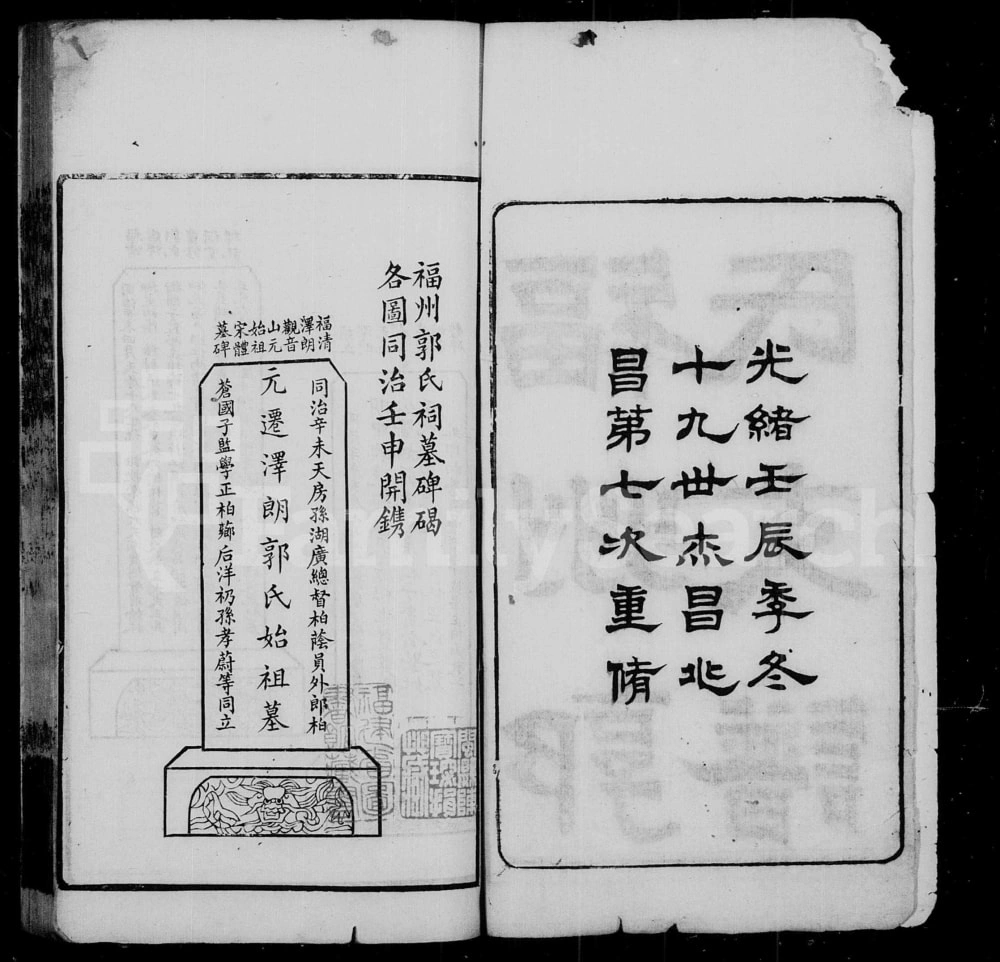 光緒壬辰季冬
十九世杰昌北
昌第七次重脩
福州郭氏祠墓碑碣
各圖同治壬申開鐫
福清
澤朗
觀音
山元
始祖
宋體
墓碑
同治辛未天房孫湖廣總督柏蔭員外郎柏
元遷澤朗郭氏始祖墓
蒼國子監學正柏薌后洋礽孫孝蔚等同立
FamilySearch